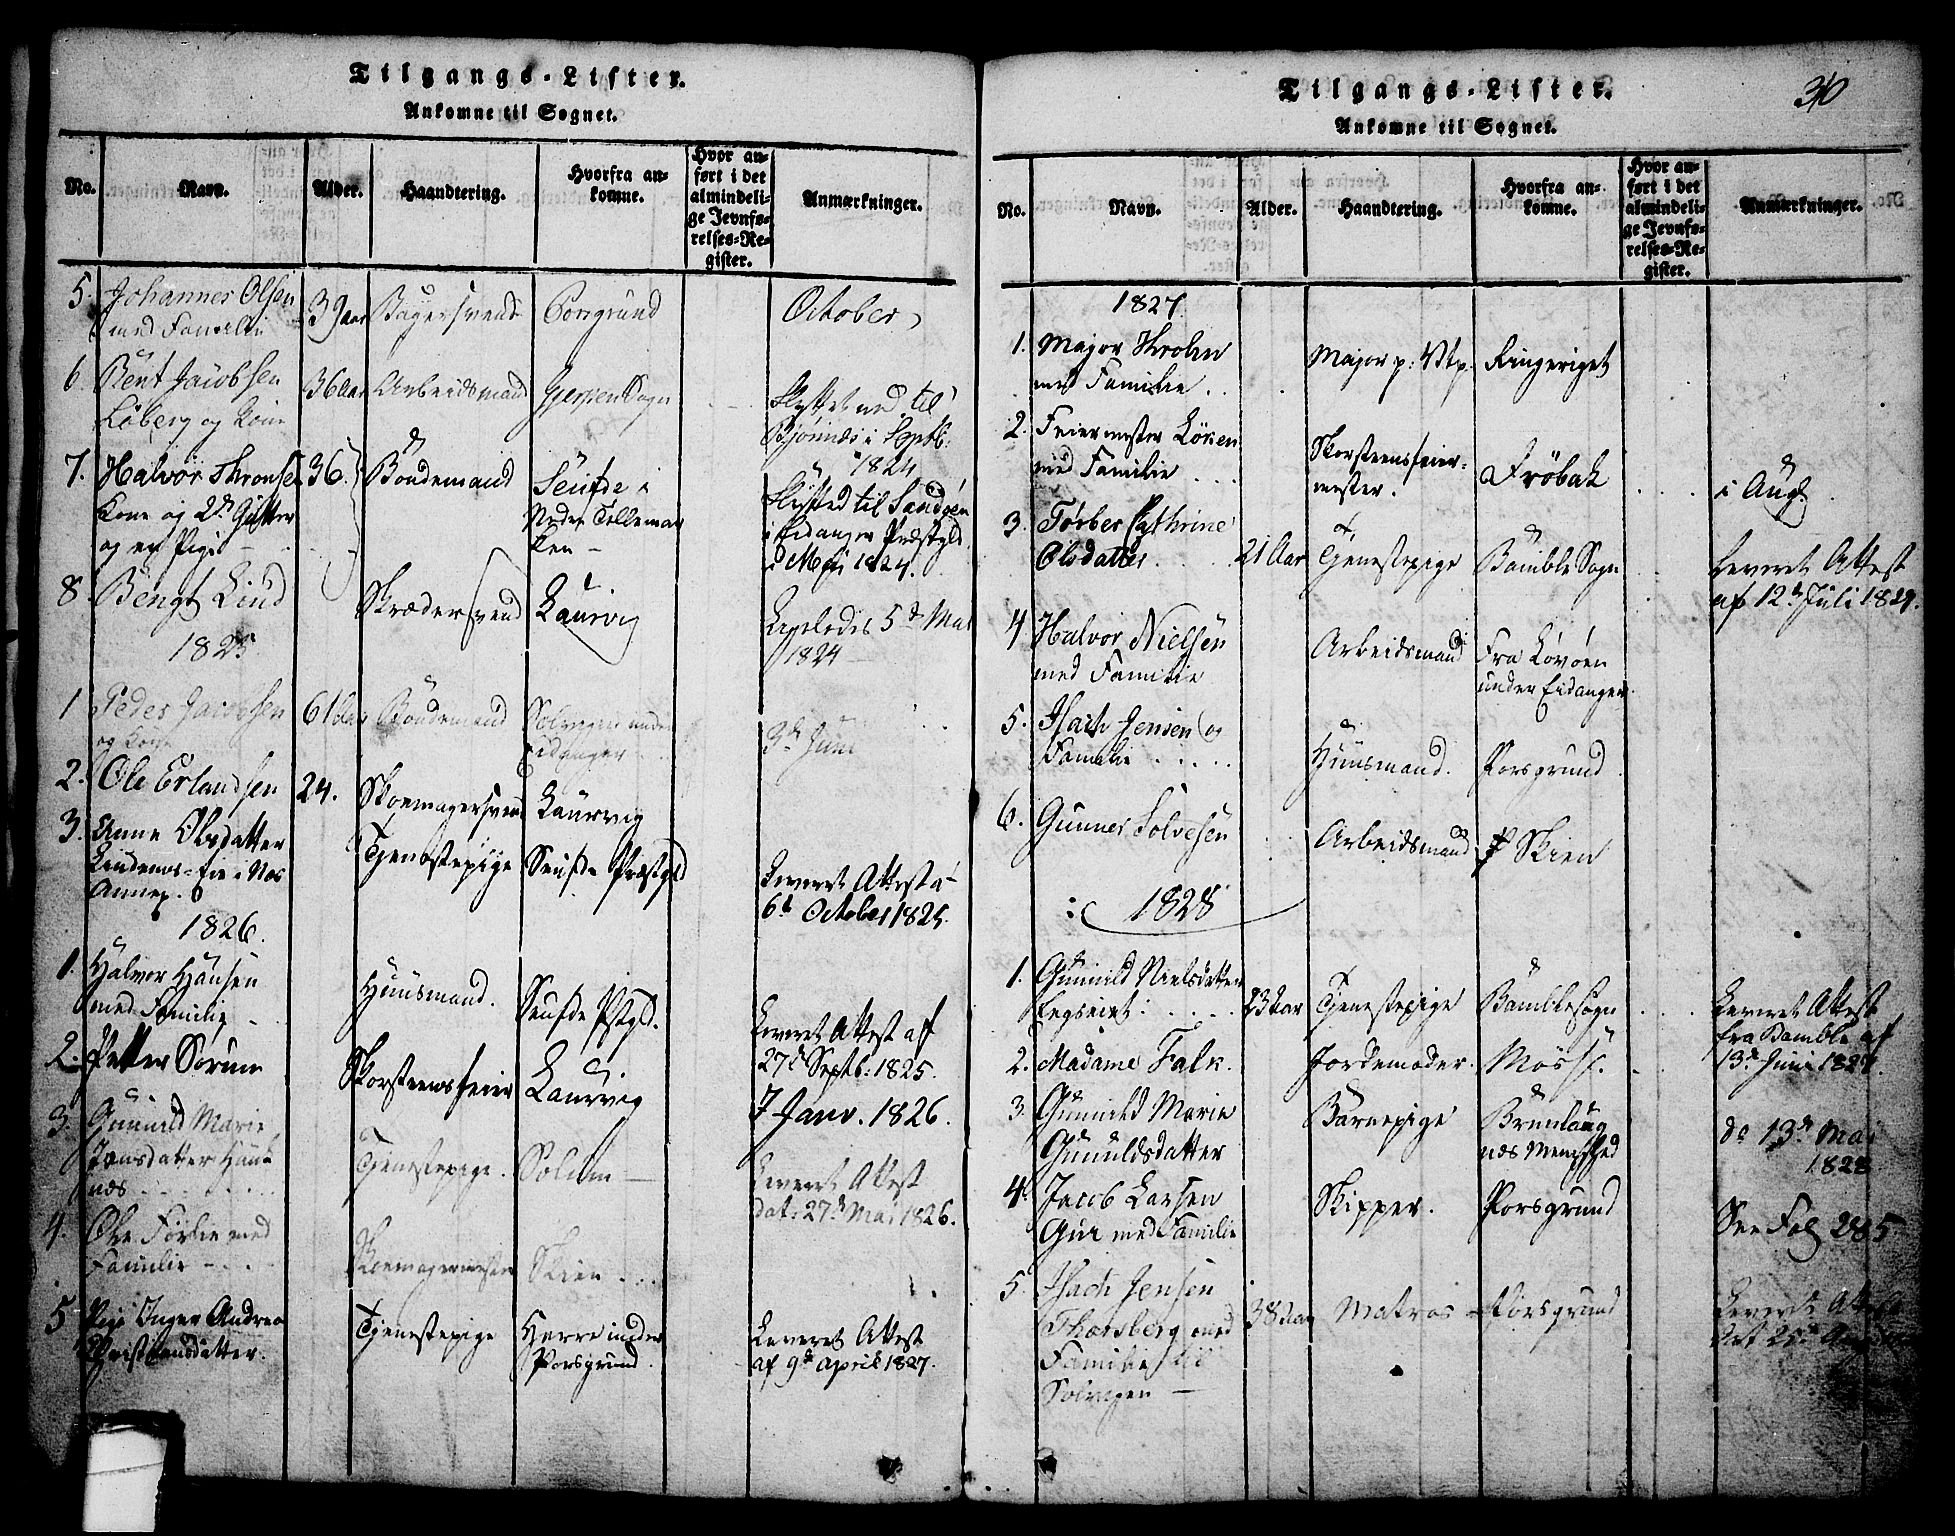 Tilgangs-Lister.
Ankomne til Sognet.
No.
Navn.
Alder.
Haandtering.
Hvorfra an-
komne.
Hvor an-
ført i det
almindeli-
ge Jevnfø-
relses-Re-
gister.
Anmærkninger.
5. Johannes Olsen
med Familie
39 aar
Bagersvend
Porsgrund
October
6. Bent Jacobsen
Löberg og Kone
36 Aar
Arbeidsmand
Gjerpen Sogn
flyttet ned til
Bjørnnes i Septb.
1824
7. Halvor
Kone og 2de Gutter
og en Pige
36.
Bondemand
Seufde i
Nedre Tellemar
ken
flytted til Sandöen
i Eidanger Præstgld.
i Mai 1824.
8. Bengt Lind
Skrædersvend
Laurvig
5te Mai
1824
1825
1 Peder Jacobsen
og Kone
61 Aar
Bondemand
Solvegen under
Eidanger
3de Juni
2. Ole Erlandsen
24.
Skoemagersvend
Laurvig
3. Anne Olsdatter
Annex.
Tjenestepige
Seufde Præstgld
Leveret Attest a
6t October 1825.
1826.
1. Halvor Hansen
med Familie
Huusmand.
Seufde Pstgld.
Leveret Attest af
27d Septb. 1825.
2. Petter Sorum
Skorsteensfeier
Laurvig
7 Janv. 1826.
3. Gunnild Marie
Jensdatter
næs
Tjenestepige.
Solum
Leveret Attest
dat: 27de Mai 1826.
4. Ole med
Familie
Skoemagermester
Skien
5 Pige Inger Andrea
Christiansdatter.
Tjenestepige
Herre under
Porsgrund.
Leveret Attest
af 9de April 1827.
Tilgangs-Lister.
Ankomne til Sognet.
310
No.
Navn.
Alder.
Haandtering.
Hvorfra an-
komne.
Hvor an-
ført i det
almindeli-
ge Jevnfø-
relses-Re-
gister.
Anmærkninger.
1827.
1. Major Krohn
med Familie
Major p: Vtp.
Ringeriget
2. Feiermester Löken
med Familie
Skorsteensfeier-
mester.
Fröbak
i Augt
3. Torber Cathrine
Olsdatter
21 Aar
Tjenestepige
Bamble Sogn
Leveret Attest
af 12te Juli 1827.
4 Halvor Nielsen
med Familie
Arbeidsmand
Fra Lövöen
under Eidanger.
5. Isach Jensen og
Familie
Huusmand.
Porsgrund
6. Gunner Solvesen
Arbeidsmand
Skien
1828
1. Gunnild Nielsdatter
23 Aar
Tjenestepige
Bamblesogn
Leveret Attest
fra Bamble af
13de Juni 1827.
2. Madame Falk.
Jordemoder.
Moss.
3. Gunnild Marie
Gunuldsdatter
Barnepige
Brunlaug
næs Menighed
do 13de Mai
1828
4. Jacob Larsen
Gur med Familie
Skipper.
Porsgrund
See Fol 285
5. Isach Jensen
Thorsberg med
Familie til
Solvegen
38 Aar
Matros
Porsgrund
Leveret Attest